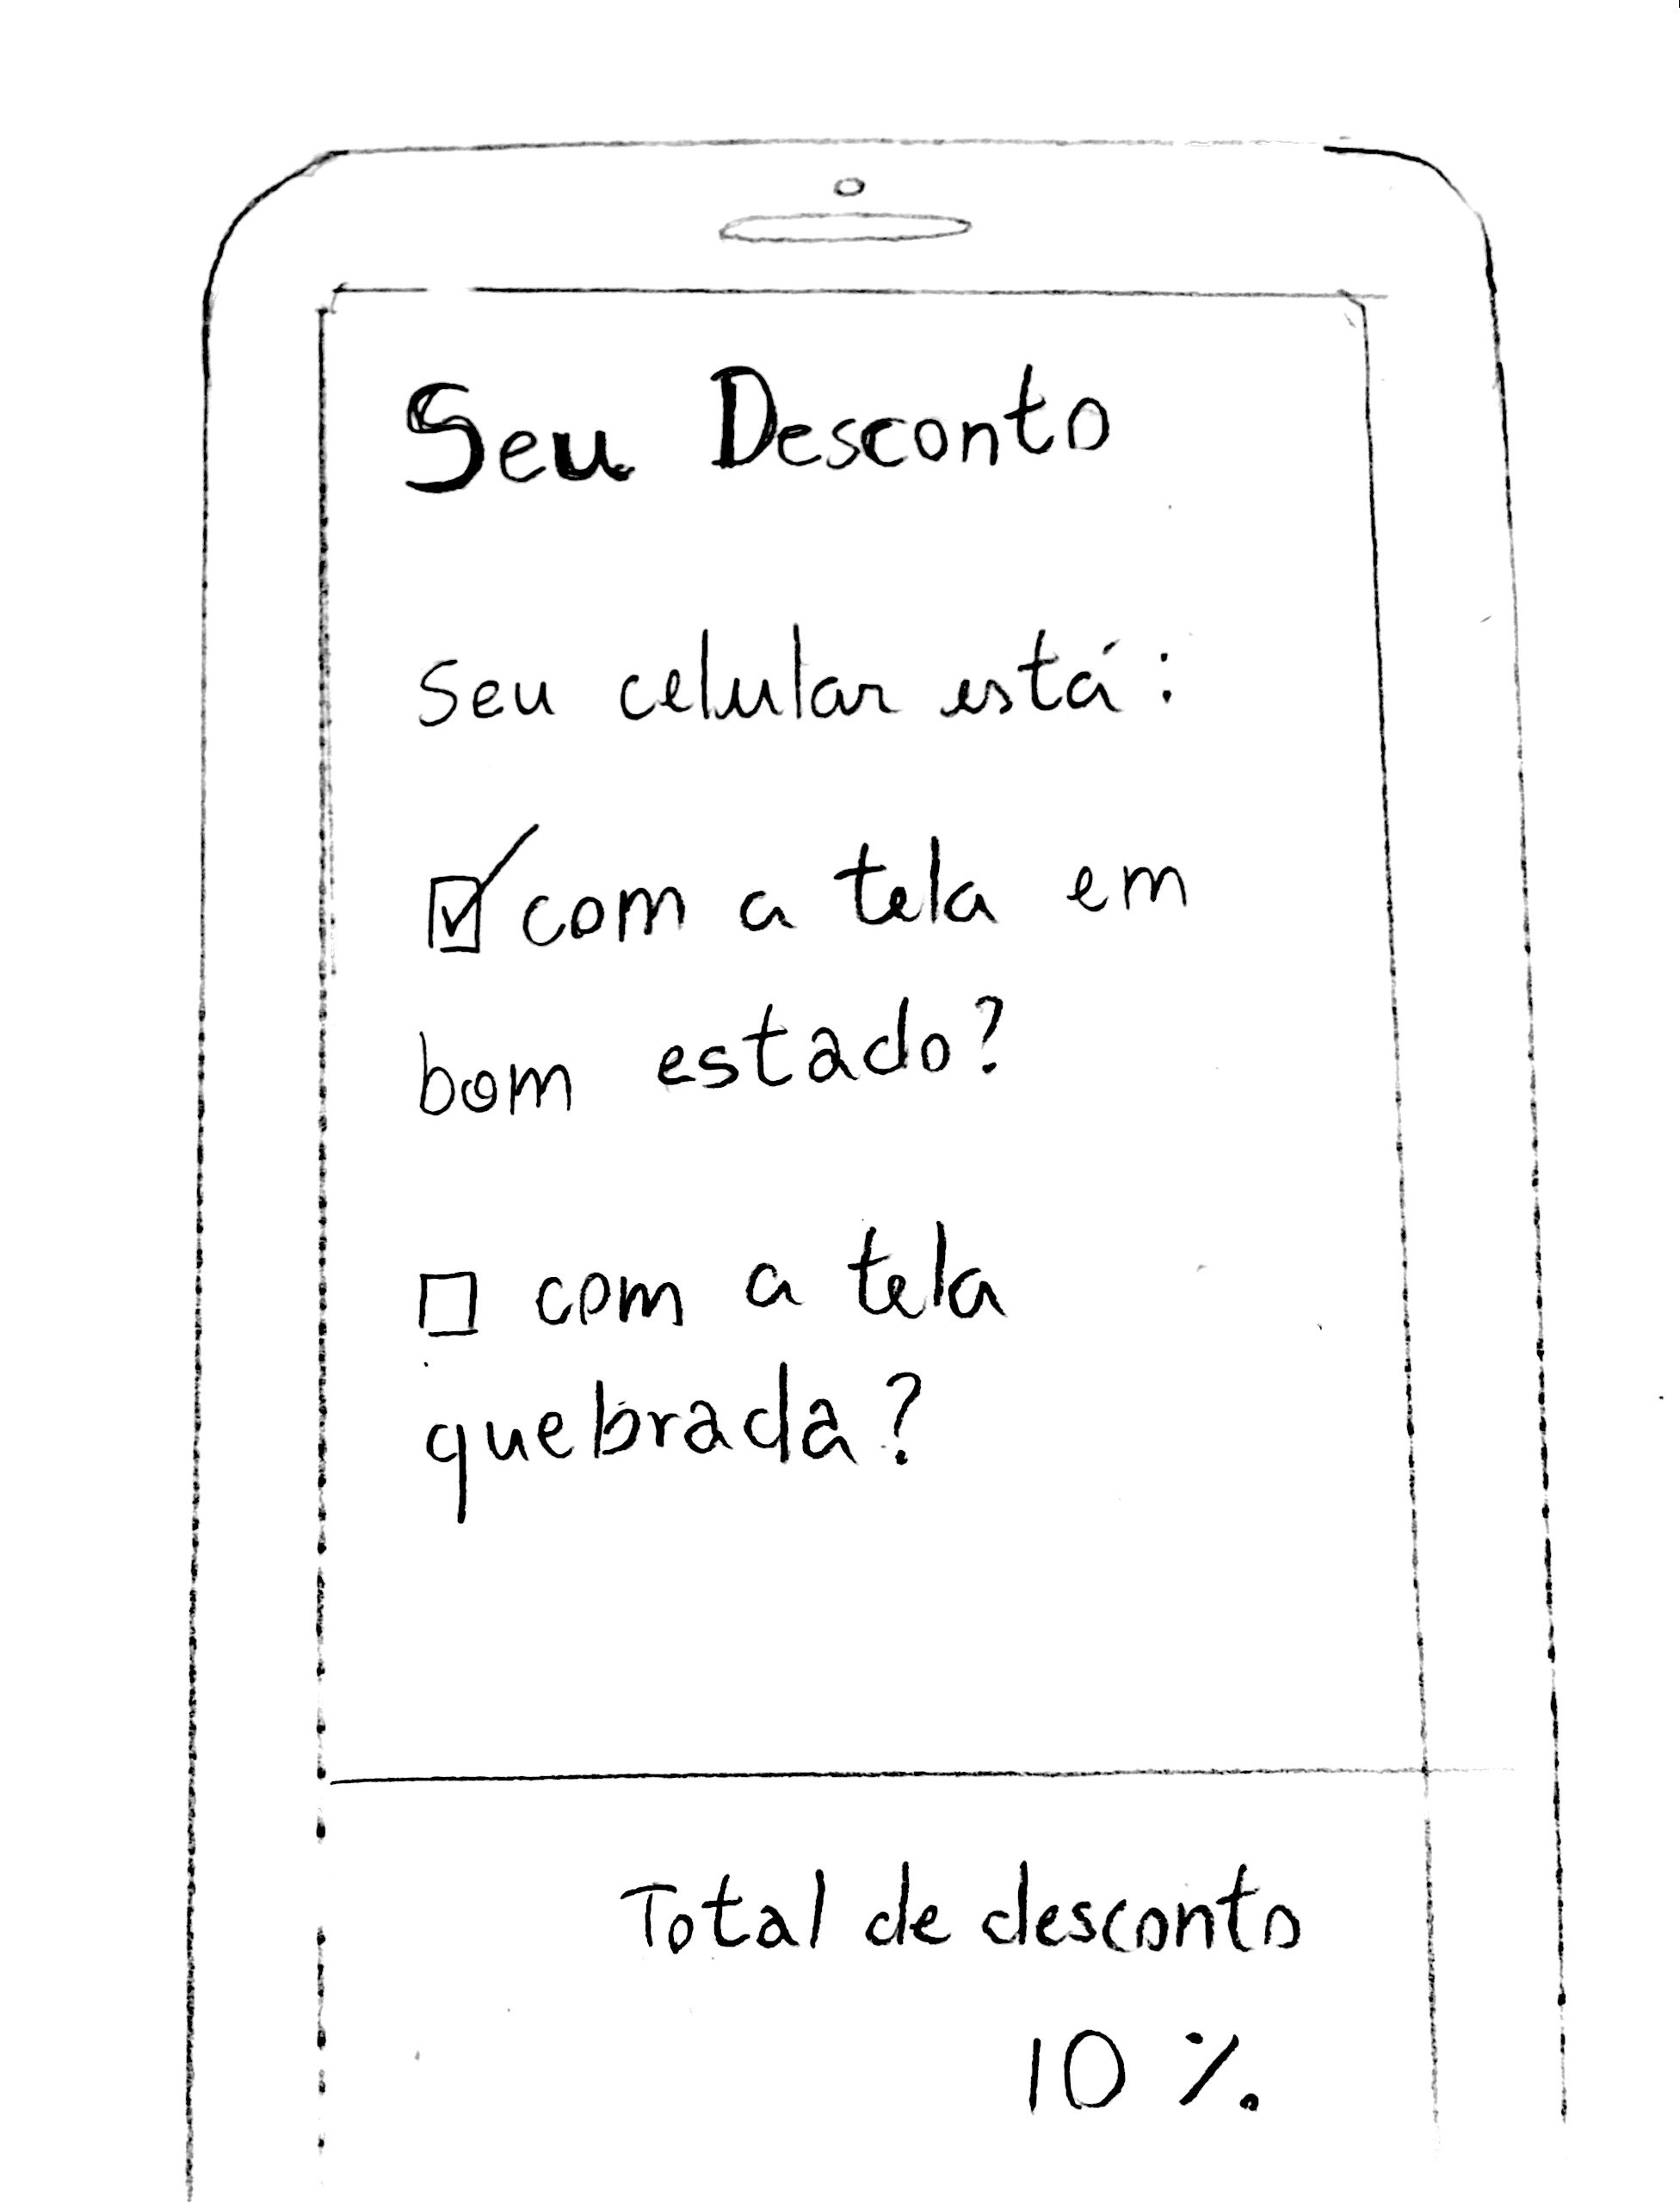 Seu Desconto
Seu celular está:
☑ com a tela em
bom estado?
☐ com a tela
quebrada?
Total de desconto
10 %